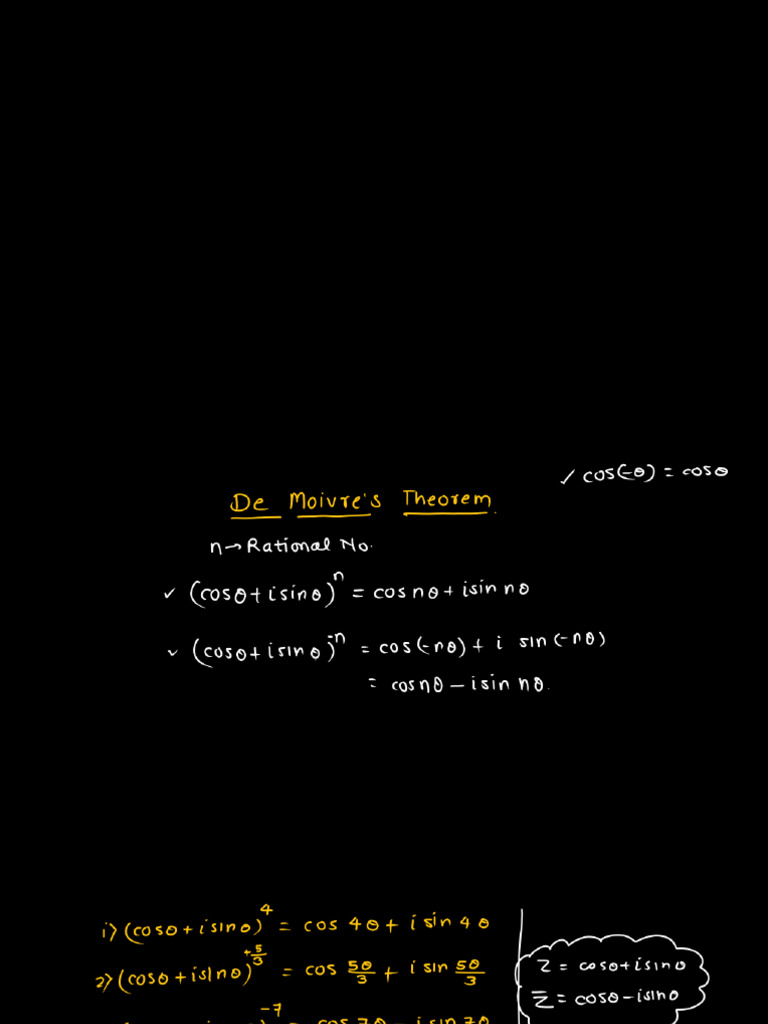 ✓ cos(-θ) = cosθ
De Moivre's Theorem.
n→Rational No.
✓ (cosθ+isinθ)^n = cosnθ+isin nθ
✓ (cosθ+isinθ)^-n = cos(-nθ) + i sin(-nθ)
= cosnθ – isin nθ.
1) (cosθ+isinθ)^4 = cos 4θ + i sin 4θ
2) (cosθ+isinθ)^+5/3 = cos 5θ/3 + i sin 5θ/3
z = cosθ+isinθ
z̅ = cosθ-isinθ